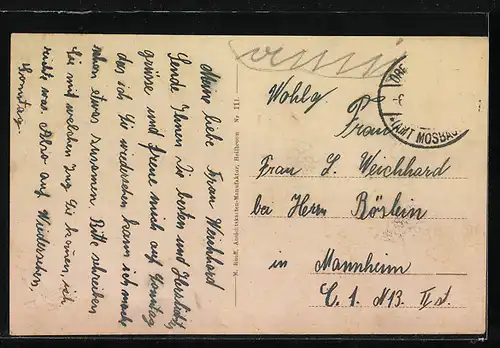 Meine liebe Frau Weichhard
Sende Ihnen Die besten und Herzlichst
grüsse und freue mich auf Sonntag
das ich Sie wiedersehen kann ich mache
schon etwas zusamen Bitte schreiben
Sie mit welchen Zug Sie komen, ich
nichts was. Also auf Wiedersehen,
Sonntag.
M. Rueff, Ansichtskarten-Manufaktur, Heilbronn Nr. 111.
(AMT MOSBAC
Wohlg.
Frau
Frau L. Weichhard
bei Herrn Böslein
in Mannheim
C. 1. N13. II st.